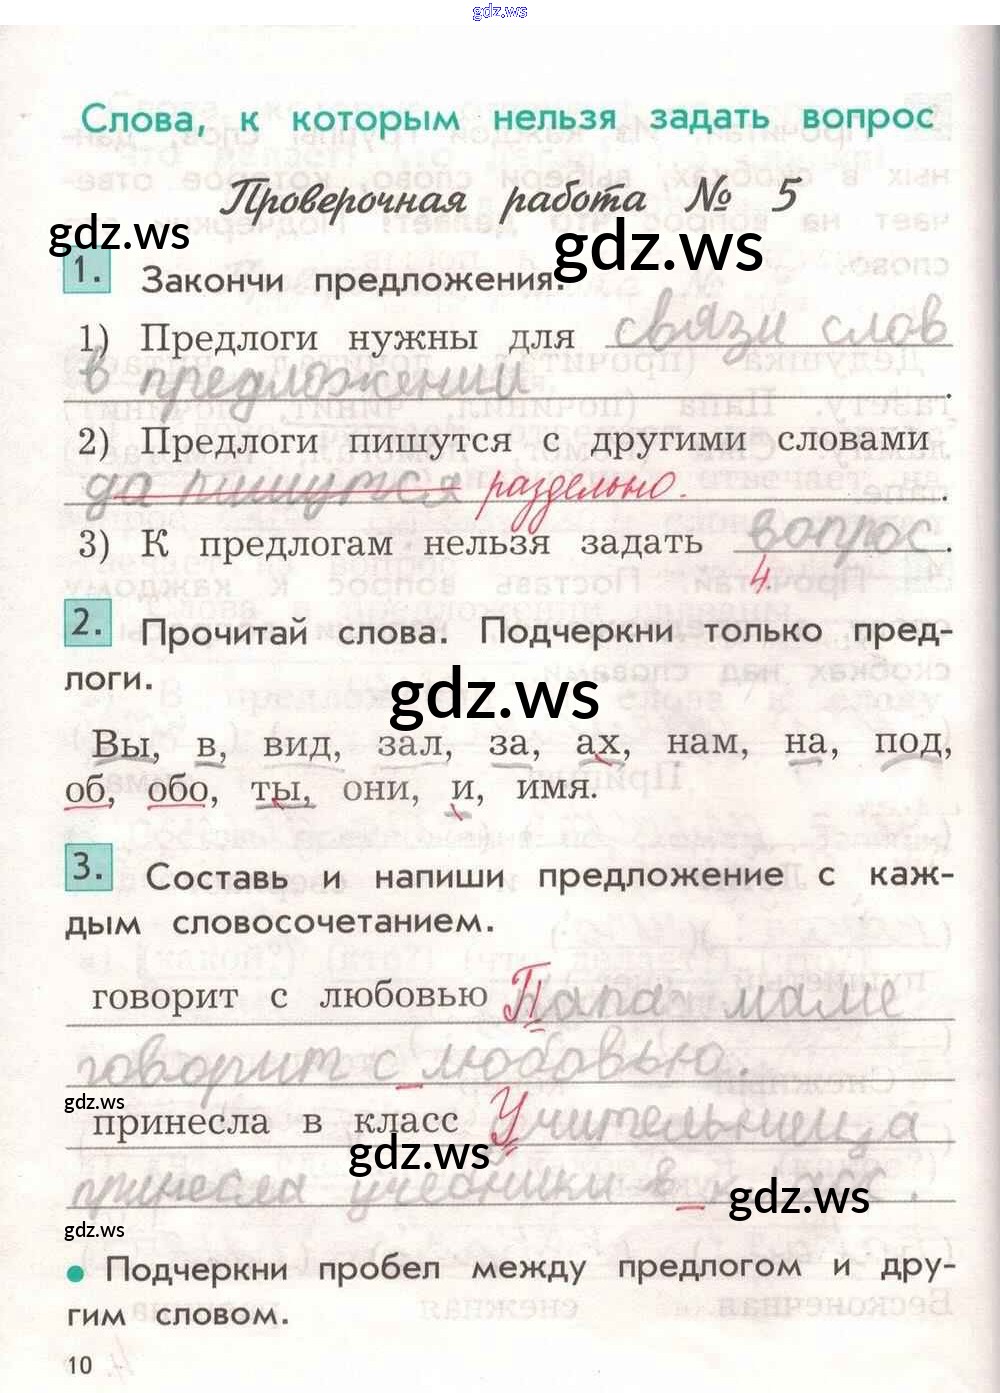 gdz.ws
Слова, к которым нельзя задать вопрос
Проверочная работа № 5
gdz.ws
gdz.ws
1. Закончи предложения.
1) Предлоги нужны для связи слов
в предложении.
2) Предлоги пишутся с другими словами
да пишутся раздельно.
3) К предлогам нельзя задать вопрос.
4.
2. Прочитай слова. Подчеркни только пред-
логи.
gdz.ws
Вы, в, вид, зал, за, ах, нам, на, под,
об, обо, ты, они, и, имя.
3. Составь и напиши предложение с каж-
дым словосочетанием.
говорит с любовью Папа маме
говорит с любовью.
gdz.ws
принесла в класс Учительница
gdz.ws
принесла учебники в класс.
gdz.ws
gdz.ws
• Подчеркни пробел между предлогом и дру-
гим словом.
10